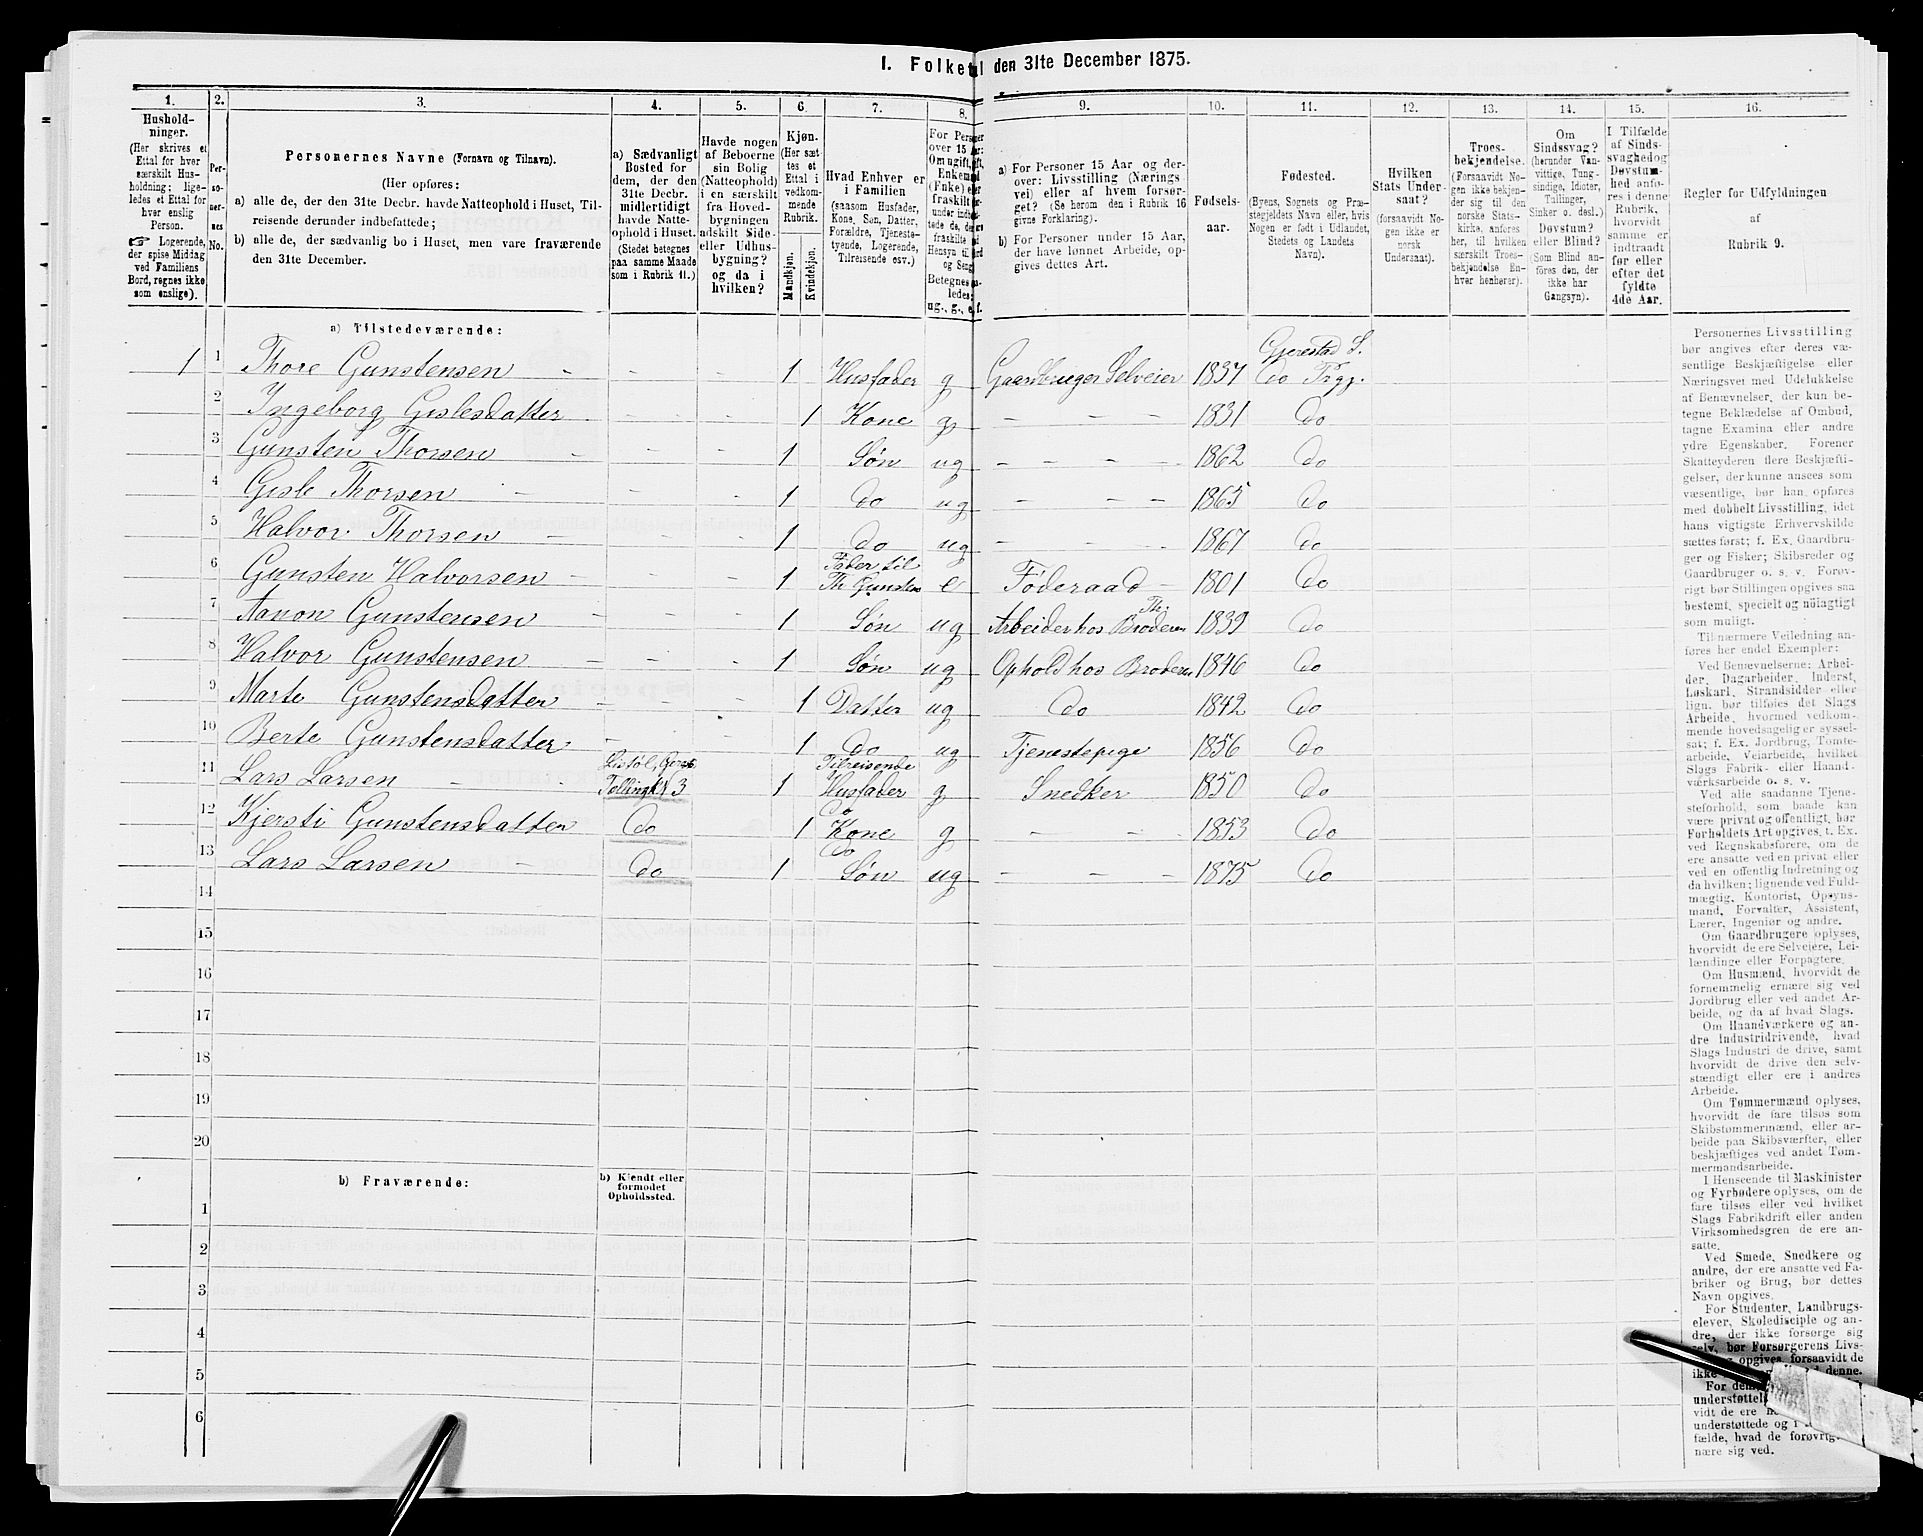 I. Folketal den 31te December 1875.
1. 2. 3. 4. 5. 6. 7. 8. 9. 10. 11. 12. 13. 14. 15. 16.
Hushold-
ninger.
(Her skrives et
Ettal for hver
særskilt Hus-
holdning; lige-
ledes et Ettal for
hver enslig
Person.
☞ Logerende,
der spise Middag
ved Familiens
Bord, regnes ikke
som enslige).
Per-
so-
ner-
nes
No.
Personernes Navne (Fornavn og Tilnavn).
(Her opføres:
a) alle de, der den 31te Decbr. havde Natteophold i Huset, Til-
reisende derunder indbefattede;
b) alle de, der sædvanlig bo i Huset, men vare fraværende
den 31te December.
a) Sædvanligt
Bosted for
dem, der den
31te Decbr.
midlertidigt
havde Natte-
ophold i Huset.
(Stedet betegnes
paa samme Maade
som i Rubrik 11.)
Havde nogen
af Beboerne
sin Bolig
(Natteophold)
i en særskilt
fra Hoved-
bygningen
adskilt Side-
eller Udhus-
bygning?
og da i
hvilken?
Kjøn.
(Her sæt-
tes et
Ettal i
vedkom-
mende
Rubrik.
Mandkjøn.
Kvindekjøn.
Hvad Enhver er
i Familien
(saasom Husfader,
Kone, Søn, Datter,
Forældre, Tjeneste-
tyende, Logerende,
Tilreisende osv.)
For Personer
over 15 Aar:
Om ugift, gift,
Enkemand
(Enke) eller
fraskilt
a) For Personer 15 Aar og der-
over: Livsstilling (Nærings-
vei) eller af hvem forsør-
get? (Se herom den i Rubrik 16
givne Forklaring).
b) For Personer under 15 Aar,
der have lønnet Arbeide, op-
gives dettes Art.
Fødsels-
aar.
Fødested.
(Byens, Sognets og Præ-
stegjeldets Navn eller, hvis
Nogen er født i Udlandet,
Stedets og Landets
Navn).
Hvilken
Stats Under-
saat?
(forsaavidt No-
gen ikke er
norsk
Undersaat).
Troes-
bekjendelse.
(Forsaavidt No-
gen ikke bekjen-
der sig til den
norske Stats-
kirke, anføres
her, til hvilken
særskilt Troes-
bekjendelse En-
hver henhører).
Om
Sindssvag?
(herunder Van-
vittige, Tung-
sindige, Idioter,
Tullinger,
Sinker o. desl.)
Døvstum?
eller Blind?
(Som Blind an-
føres den, der
ikke har
Gangsyn).
I Tilfælde
af Sinds-
svaghed og
Døvstum-
hed anfø-
res i denne
Rubrik,
hvorvidt
samme er
indtraadt
før eller
efter det
fyldte
4de Aar.
Regler for Udfyldningen
af
Rubrik 9.
a) Tilstedeværende:
Gjerestad S.
1 1 Thore Gunstensen - - - 1 Husfader g Gaardbruger Selveier 1837 do Prgj.
2 Ingeborg Gislesdatter - - - 1 Kone g - - - 1831 do
3 Gunsten Thorsen - - - 1 Søn ug - - - - 1862 do
4 Gisle Thorsen - - - 1 do ug - - - 1865 do
5 Halvor Thorsen - - - 1 do ug - - - 1867 do
Fader til
6 Gunsten Halvorsen - - - 1 Th Gunsten e Føderaad - 1801 do
Th.
7 Aanon Gunstensen - - - 1 Søn ug Arbeider hos Broderen 1839 do
8 Halvor Gunstensen - - - 1 Søn ug Ophold hos Broderen 1846 do
9 Marte Gunstensdatter - - - 1 Datter ug do 1842 do
10 Berte Gunstensdatter - - - 1 do ug Tjenestepige 1856 do
Tilreisende
11 Lars Larsen - - 3 1 Husfader g Snedker 1850 do
do
12 Kjersti Gunstensdatter do 1 Kone g - - - 1853 do
do
13 Lars Larsen - do 1 Søn ug - - - 1875 do
14
15
16
17
18
19
20
b) Fraværende:
b) Kjendt eller
formodet
Opholdssted.
1
2
3
4
5
6
Personernes Livsstilling
bør angives efter deres væ-
sentlige Beskjæftigelse eller
Næringsvei med Udelukkelse
af Benævnelser, der kun be-
tegne Beklædelse af Ombud,
tagne Examina eller andre
ydre Egenskaber. Forener
Skatteyderen flere Beskjæfti-
gelser, der kunne ansees som
væsentlige, bør han opføres
med dobbelt Livsstilling, idet
hans vigtigste Erhvervskilde
sættes først; f. Ex. Gaardbru-
ger og Fisker; Skibsreder og
Gaardbruger o. s. v. Forøv-
rigt bør Stillingen opgives saa
bestemt, specielt og nøiagtigt
som muligt.
Til nærmere Veiledning an-
føres her endel Exempler:
Ved Benævnelserne: Arbei-
der, Dagarbeider, Inderst,
Løskarl, Strandsidder eller
lign. bør tilføies det Slags
Arbeide, hvormed vedkom-
mende hovedsagelig er syssel-
sat; f. Ex. Jordbrug, Tomte-
arbeide, Veiarbeide, hvilket
Slags Fabrik- eller Haand-
værksarbeide o. s. v.
Ved alle saadanne Tjene-
steforhold, som baade kan
være privat og offentligt, bør
Forholdets Art opgives, t. Ex.
ved Regnskabsførere, om de
ere ansatte ved en privat eller
ved en offentlig Indretning og
da hvilken; lignende ved Fuld-
mægtig, Kontorist, Opsyns-
mand, Forvalter, Assistent,
Lærer, Ingeniør og andre.
Om Gaardbrugere oplyses,
hvorvidt de ere Selveiere, Lei-
lændinge eller Forpagtere.
Om Husmænd, hvorvidt de
fornemmelig ernære sig ved
Jordbrug eller ved andet Ar-
beide, og da af hvad Slags.
Om Haandværkere og an-
dre Industridrivende, hvad
Slags Industri de drive, samt
hvorvidt de drive den selv-
stændigt eller ere i andres
Arbeide.
Om Tømmermænd oplyses,
hvorvidt de fare tilsøs som
Skibstømmermænd, eller ar-
beide paa Skibsværfter, eller
beskjæftiges ved andet Tøm-
mermandsarbeide.
I Henseende til Maskinister
og Fyrbødere oplyses, om de
fare tilsøs eller ved hvilket
Slags Fabrikdrift eller anden
Virksomhedsgren de ere an-
satte.
Ved Smede, Snedkere og
andre, der ere ansatte ved Fa-
briker og Brug, bør dettes
Navn opgives.
For Studenter, Landbrugs-
elever, Skoledisciple og an-
dre, der ikke forsørge sig
selv, bør Forsørgerens Livs-
opgives, forsaavidt de
ikke denne.
For dem,
understøttel
vidt de ere
understøttede og i
fælde, hvad de forøvrig
nære sig ved.